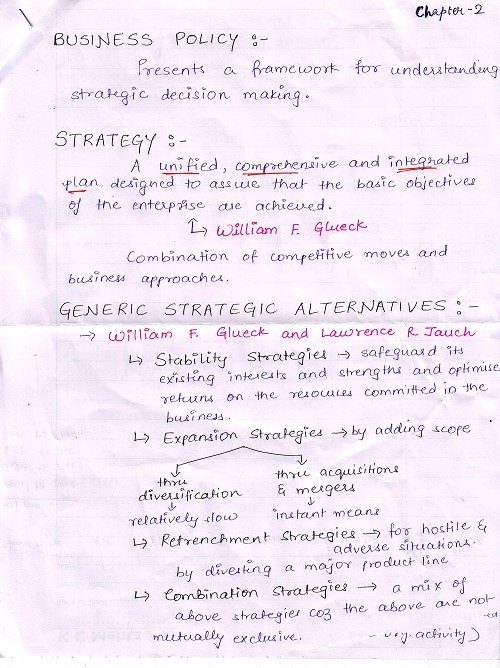 Chapter-2
BUSINESS POLICY :-
Presents a framework for understanding
strategic decision making.
STRATEGY :-
A unified, comprehensive and integrated
plan designed to assure that the basic objectives
of the enterprise are achieved.
↳ William F. Glueck
Combination of competitive moves and
business approaches.
GENERIC STRATEGIC ALTERNATIVES :-
→ William F. Glueck and Lawrence R Jauch
↳ Stability Strategies → safeguard its
existing interests and strengths and optimise
returns on the resources committed in the
business.
↳ Expansion Strategies → by adding scope
thru diversification
thru acquisitions & mergers
relatively slow
instant means
↳ Retrenchment Strategies → for hostile &
adverse situations.
by divesting a major product line
↳ Combination Strategies → a mix of
above strategies coz the above are not
mutually exclusive.
activity)